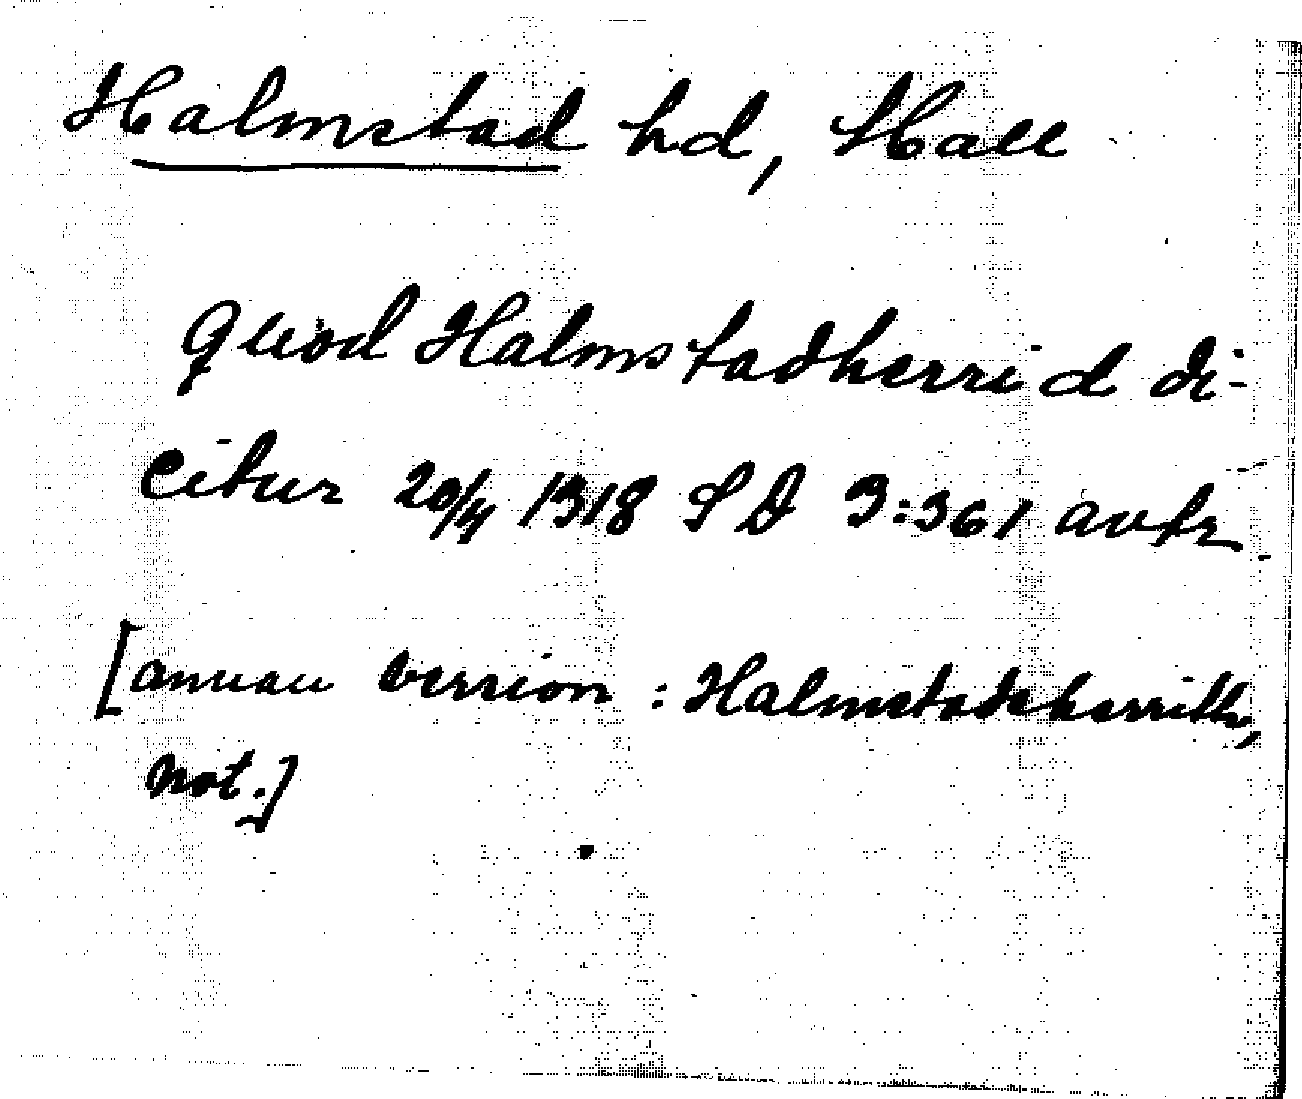 Halmstad hd, Hall
quod Halmstadherrid di-
citur 20/4 1318 SD 3:361 avkr.
[annan version: Halmstadsherrith,
not.]